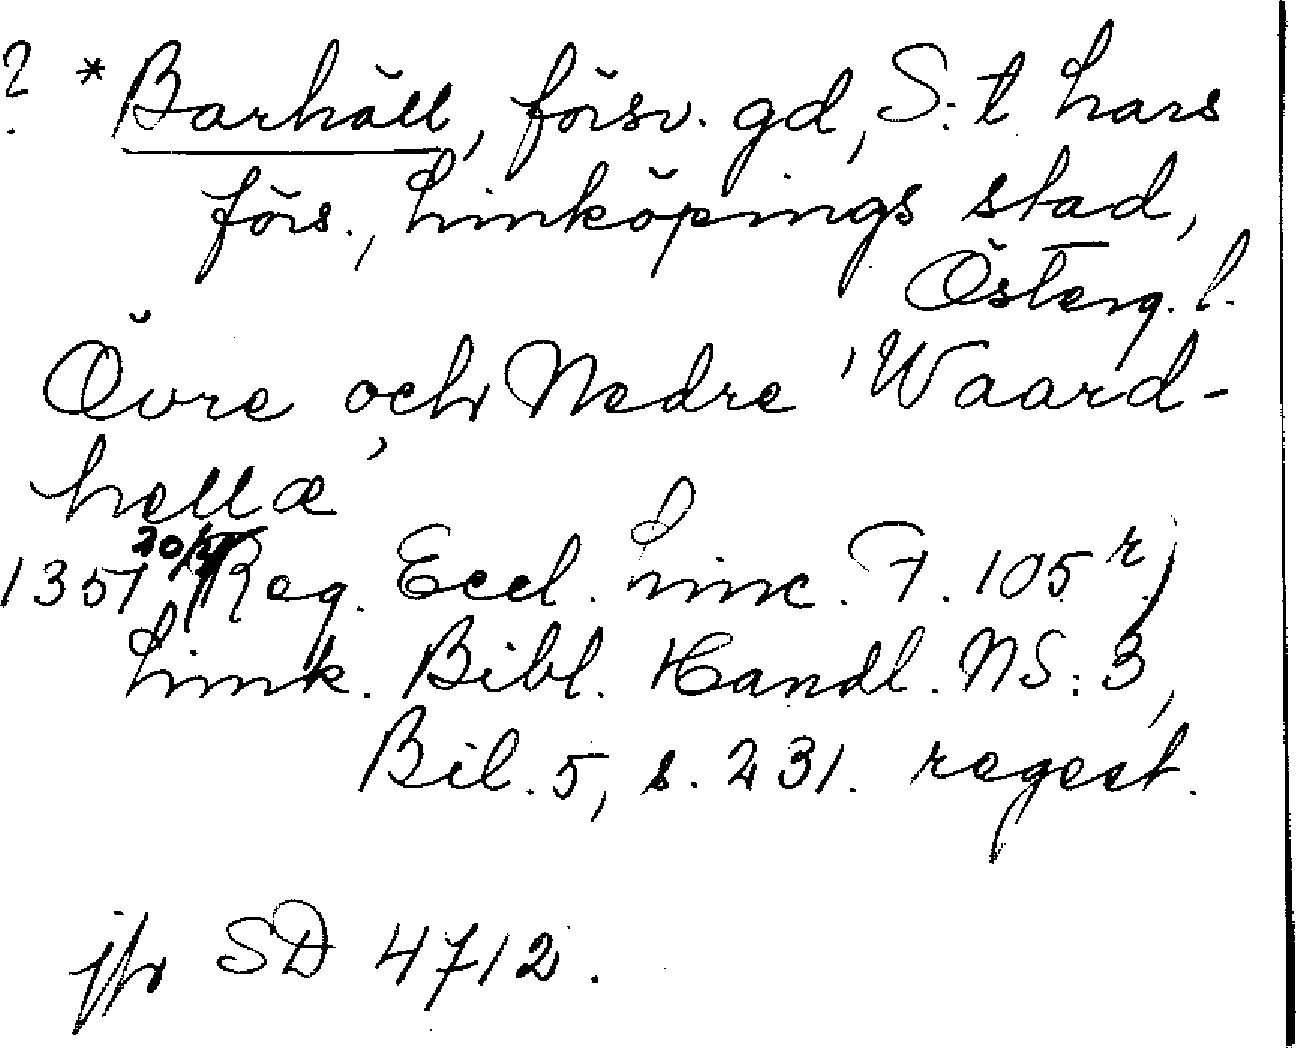 ? *Barhäll, försv. gd, S:t Lars
förs., Linköpings stad,
Österg. l.
Övre och Nedre 'Waard-
hellæ'
1357 20/ Reg. Eccl. Linc. F. 105 r)
Link. Bibl. Handl. NS: 3,
Bil. 5, s. 231. regest.
jfr SD 4712.